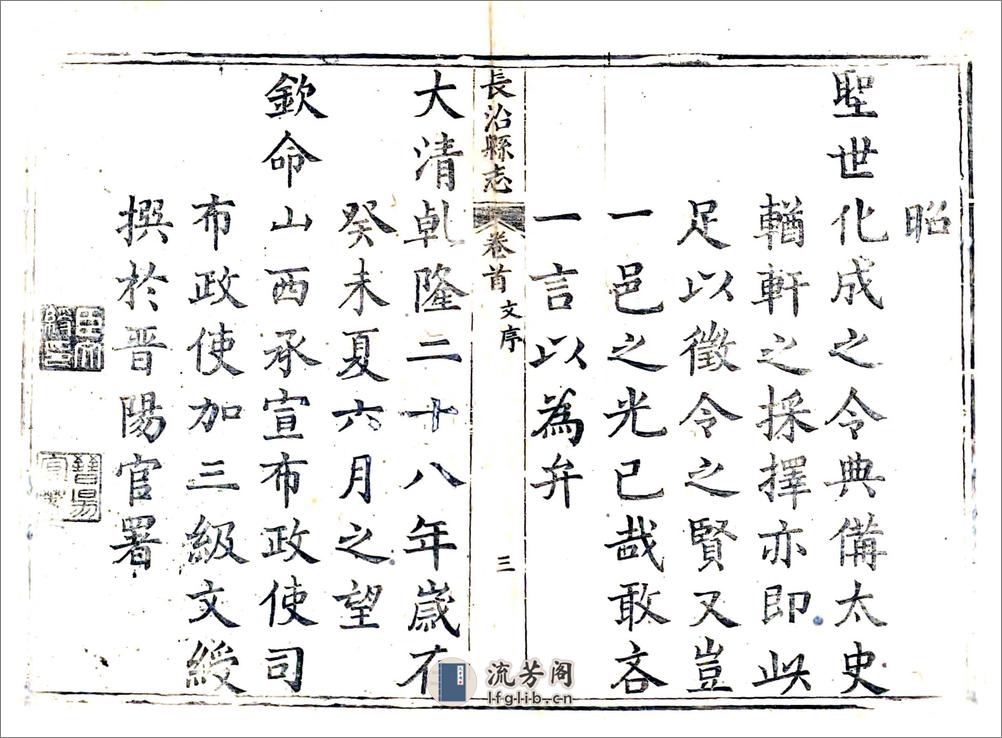 昭
聖世化成之令典備太史
輶軒之採擇亦即此
足以徵令之賢又豈
一邑之光已哉敢吝
一言以為弁
長治縣志 卷首 文序 三
大清乹隆二十八年歲在
癸未夏六月之望
欽命山西承宣布政使司
布政使加三級文綬
撰於晋陽官署
流芳阁
lfglib.cn